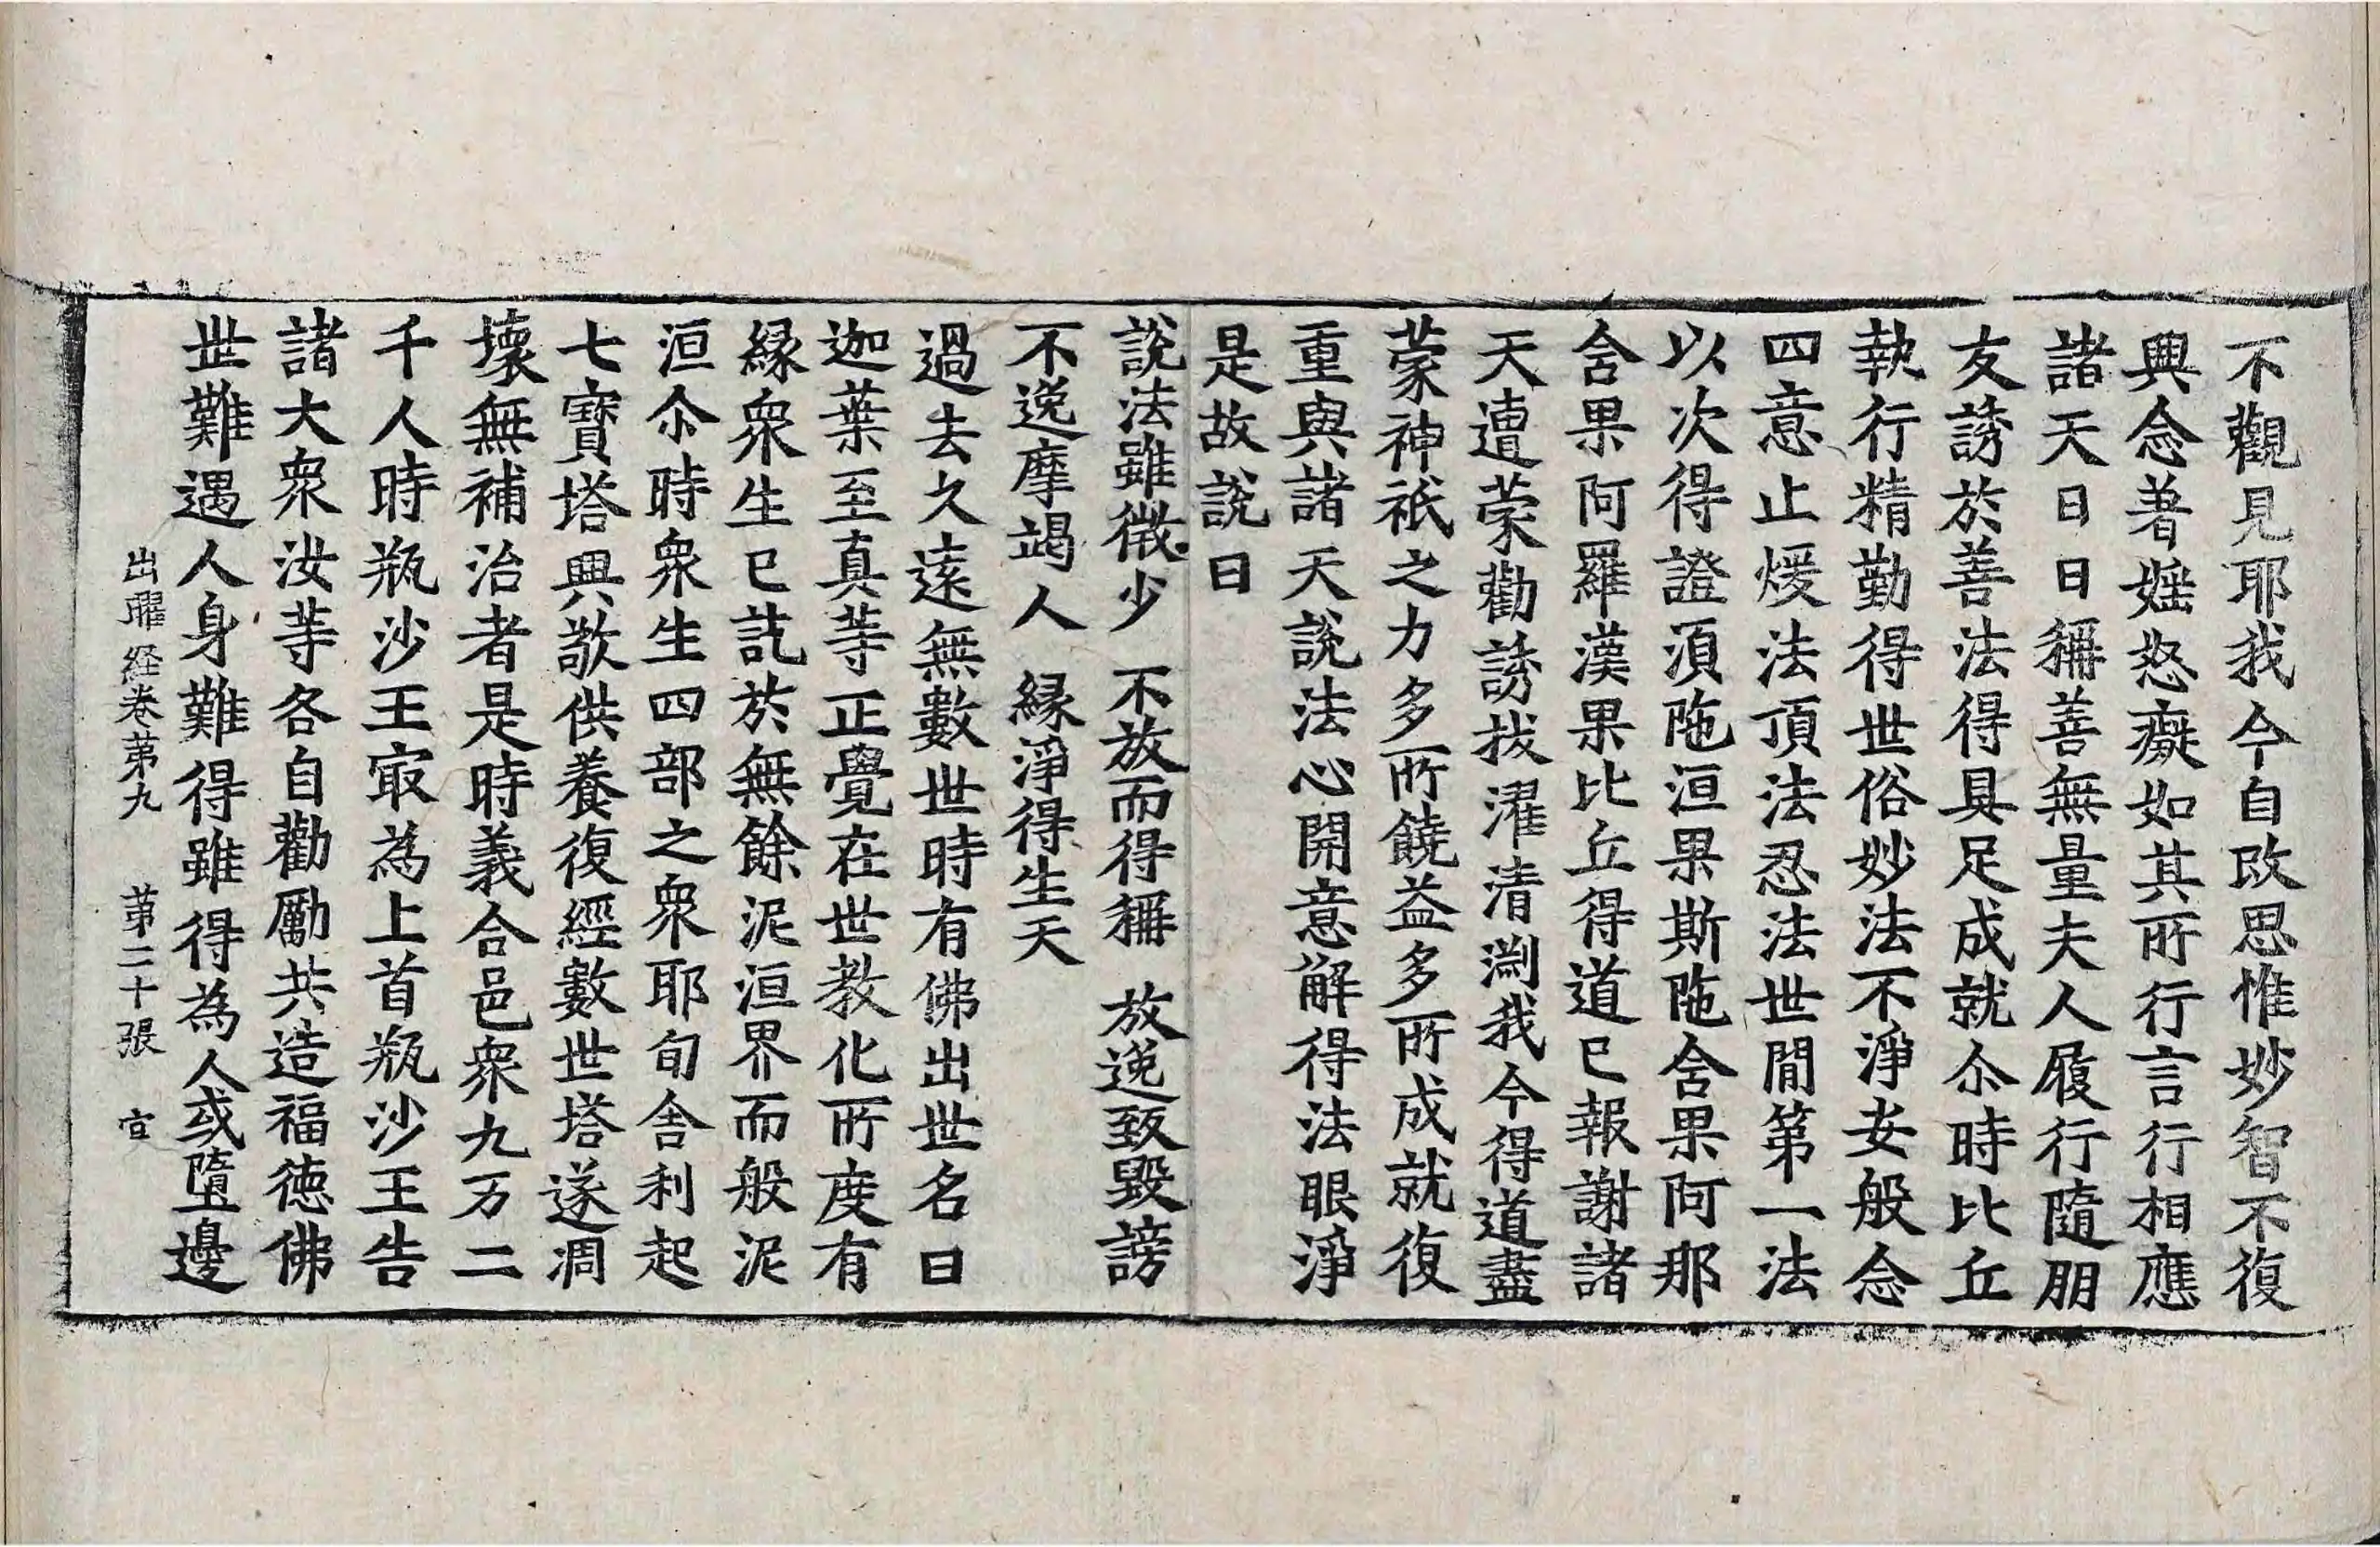 不觀見耶我今自改思惟妙智不復
興念著婬怒癡如其所行言行相應
諸天日日稱善無量夫人履行隨朋
友誘於善法得具足成就尒時比丘
執行精勤得世俗妙法不淨安般念
四意止煖法頂法忍法世間第一法
以次得證湏陁洹果斯陁含果阿那
含果阿羅漢果比丘得道已報謝諸
天遭蒙勸誘拔濯清淵我今得道盡
蒙神祇之力多所饒益多所成就復
重與諸天說法心開意解得法眼淨
是故說曰
說法雖微少　不放而得稱　放逸致毀謗
不逸摩竭人　緣淨得生天
過去久遠無數世時有佛出世名曰
迦葉至真等正覺在世教化所度有
緣衆生已訖於無餘泥洹界而般泥
洹尒時衆生四部之衆耶旬舍利起
七寶塔興敬供養復經數世塔遂凋
壞無補治者是時義合邑衆九万二
千人時瓶沙王㝡為上首瓶沙王告
諸大衆汝等各自勸勵共造福德佛
世難遇人身難得雖得為人或墮邊
出曜経卷第九　第二十張　宣